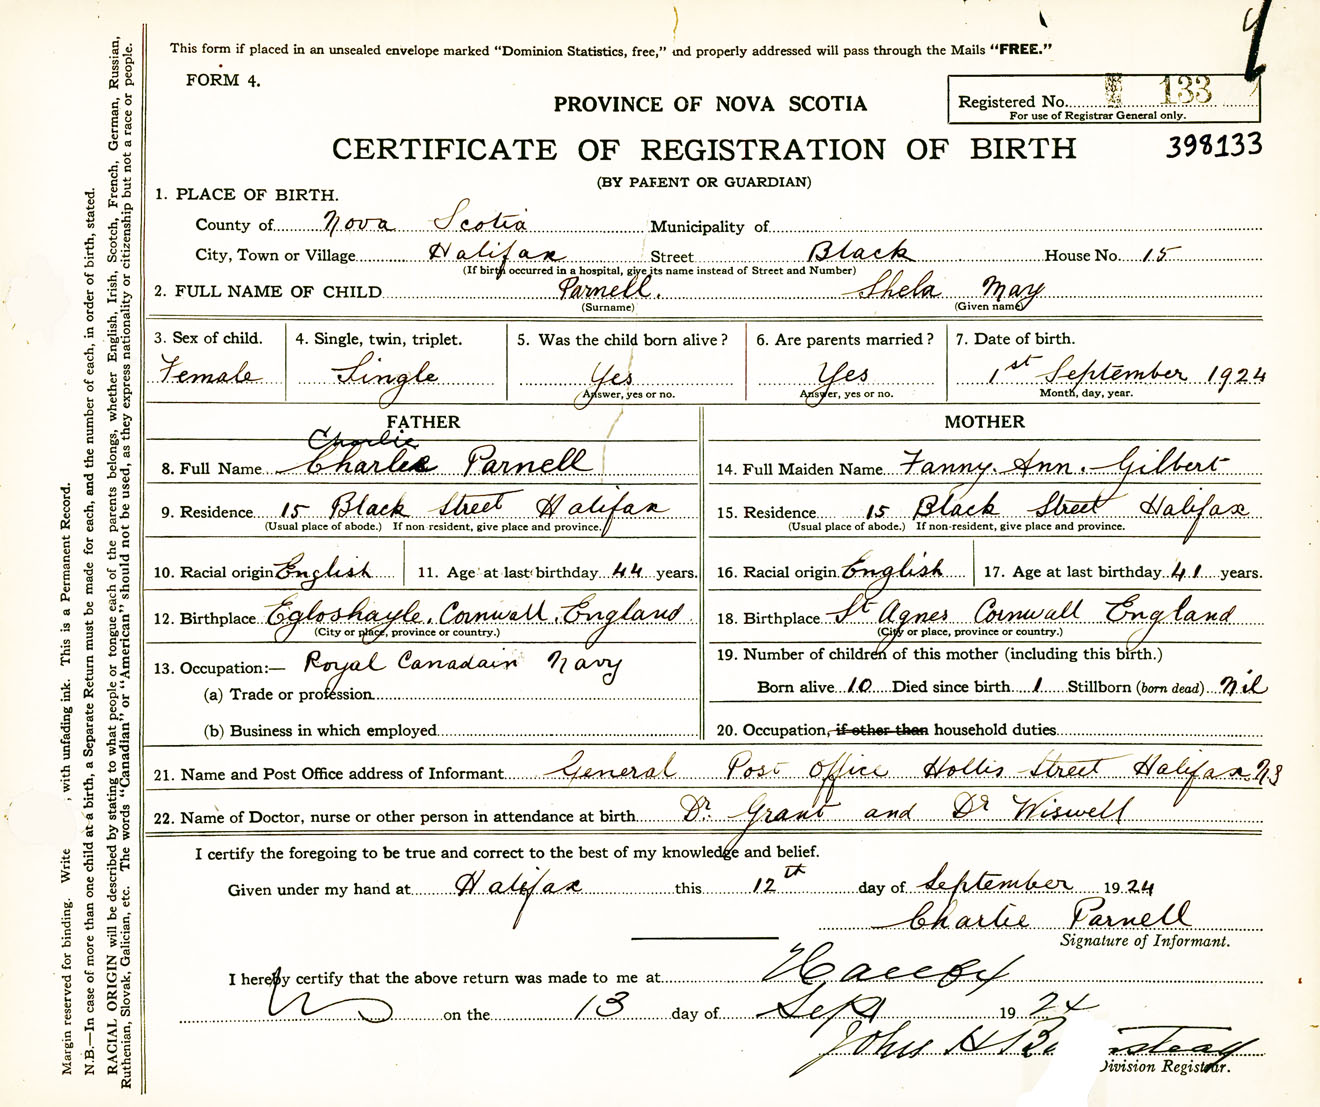 This form if placed in an unsealed envelope marked “Dominion Statistics, free,” and properly addressed will pass through the Mails “FREE.”
FORM 4.
PROVINCE OF NOVA SCOTIA
Registered No. 133
For use of Registrar General only.
CERTIFICATE OF REGISTRATION OF BIRTH 398133
(BY PARENT OR GUARDIAN)
1. PLACE OF BIRTH.
County of Nova Scotia Municipality of
City, Town or Village Halifax Street Black House No. 15
(If birth occurred in a hospital, give its name instead of Street and Number)
2. FULL NAME OF CHILD Parnell. Shela May
(Surname) (Given name)
3. Sex of child. 4. Single, twin, triplet. 5. Was the child born alive? 6. Are parents married? 7. Date of birth.
Female Single Yes Yes 1st September 1924
Answer, yes or no. Answer, yes or no. Month, day, year.
FATHER MOTHER
Charlie
8. Full Name Charlie Parnell 14. Full Maiden Name Fanny. Ann. Gilbert
9. Residence 15 Black Street Halifax 15. Residence 15 Black Street Halifax
(Usual place of abode.) If non-resident, give place and province. (Usual place of abode.) If non-resident, give place and province.
10. Racial origin English 11. Age at last birthday 44 years. 16. Racial origin English 17. Age at last birthday 41 years.
12. Birthplace Egloshayle. Cornwall. England. 18. Birthplace St Agnes Cornwall England
(City or place, province or country.) (City or place, province or country.)
13. Occupation:— Royal Canadain Navy 19. Number of children of this mother (including this birth.)
(a) Trade or profession Born alive 10 Died since birth 1 Stillborn (born dead) Nil
(b) Business in which employed 20. Occupation, if other than household duties
21. Name and Post Office address of Informant General Post Office Hollis Street Halifax. NS
22. Name of Doctor, nurse or other person in attendance at birth Dr. Grant and Dr Wiswell
I certify the foregoing to be true and correct to the best of my knowledge and belief.
Given under my hand at Halifax this 12th day of September 1924
Charlie Parnell
Signature of Informant.
I hereby certify that the above return was made to me at Halifax
on the 13 day of Sept 1924
John H
Division Registrar.
Margin reserved for binding. Write , with unfading ink. This is a Permanent Record.
N.B.—In case of more than one child at a birth, a Separate Return must be made for each, and the number of each, in order of birth, stated.
RACIAL ORIGIN will be described by stating to what people or tongue each of the parents belongs, whether English, Irish, Scotch, French, German, Russian,
Ruthenian, Slovak, Galician, etc. The words “Canadian” or “American” should not be used, as they express nationality or citizenship but not a race or people.